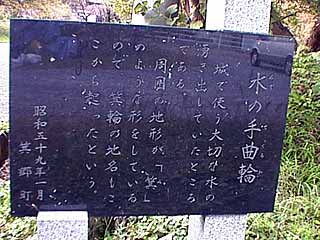 水の手曲輪
城で使う大切な水の
湧き出していたところ
である。
周囲の地形が、「箕」
のような形をしている
ので、箕輪の地名もこ
こから案ったという。
昭和五十九年一月
箕郷町